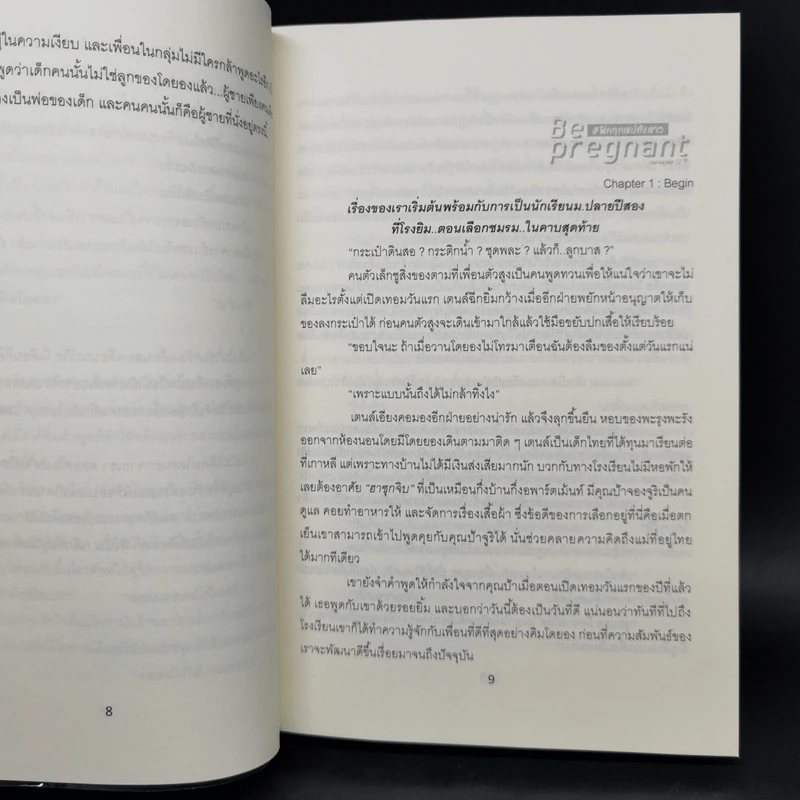 ในความเงียบ และเพื่อนในกลุ่มไม่มีใครกล้าพูดอะไร
พูดว่าเด็กคนนั้นไม่ใช่ลูกของโดยองแล้ว...ผู้ชายเพียง
เป็นพ่อของเด็ก และคนคนนั้นก็คือผู้ชายที่นั่งอยู่ตรงนี้
8
Be
pregnant
Chapter 1 : Begin
เรื่องของเราเริ่มต้นพร้อมกับการเป็นนักเรียนม.ปลายปีสอง
ที่โรงยิม..ตอนเลือกชมรม..ในคาบสุดท้าย
“กระเป๋าดินสอ ? กระติกน้ำ ? ชุดพละ ? แล้วก็..ลูกบาส ?”
คนตัวเล็กชูสิ่งของตามที่เพื่อนตัวสูงเป็นคนพูดทวนเพื่อให้แน่ใจว่าเขาจะไม่
ลืมอะไรตั้งแต่เปิดเทอมวันแรก เตนล์ฉีกยิ้มกว้างเมื่ออีกฝ่ายพยักหน้าอนุญาตให้เก็บ
ของลงกระเป๋าได้ ก่อนคนตัวสูงจะเดินเข้ามาใกล้แล้วใช้มือขยับปกเสื้อให้เรียบร้อย
“ขอบใจนะ ถ้าเมื่อวานโดยองไม่โทรมาเตือนฉันต้องลืมของตั้งแต่วันแรกแน่
เลย”
“เพราะแบบนั้นถึงได้ไม่กล้าทิ้งไง”
เตนล์เอียงคอมองอีกฝ่ายอย่างน่ารัก แล้วจึงลุกขึ้นยืน หอบของพะรุงพะรัง
ออกจากห้องนอนโดยมีโดยองเดินตามมาติด ๆ เตนล์เป็นเด็กไทยที่ได้ทุนมาเรียนต่อ
ที่เกาหลี แต่เพราะทางบ้านไม่ได้มีเงินส่งเสียมากนัก บวกกับทางโรงเรียนไม่มีหอพักให้
เลยต้องอาศัย “ฮาซุกจิบ” ที่เป็นเหมือนกึ่งบ้านกึ่งอพาร์ตเม้นท์ มีคุณป้าจองจูริเป็นคน
ดูแล คอยทำอาหารให้ และจัดการเรื่องเสื้อผ้า ซึ่งข้อดีของการเลือกอยู่ที่นี่คือเมื่อตก
เย็นเขาสามารถเข้าไปพูดคุยกับคุณป้าจูริได้ นั่นช่วยคลายความคิดถึงแม่ที่อยู่ไทย
ได้มากทีเดียว
เขายังจำคำพูดให้กำลังใจจากคุณป้าเมื่อตอนเปิดเทอมวันแรกของปีที่แล้ว
ได้ เธอพูดกับเขาด้วยรอยยิ้ม และบอกว่าวันนี้ต้องเป็นวันที่ดี แน่นอนว่าทันทีที่ไปถึง
โรงเรียนเขาก็ได้ทำความรู้จักกับเพื่อนที่ดีที่สุดอย่างคิมโดยอง ก่อนที่ความสัมพันธ์ของ
เราจะพัฒนาดีขึ้นเรื่อยมาจนถึงปัจจุบัน
9